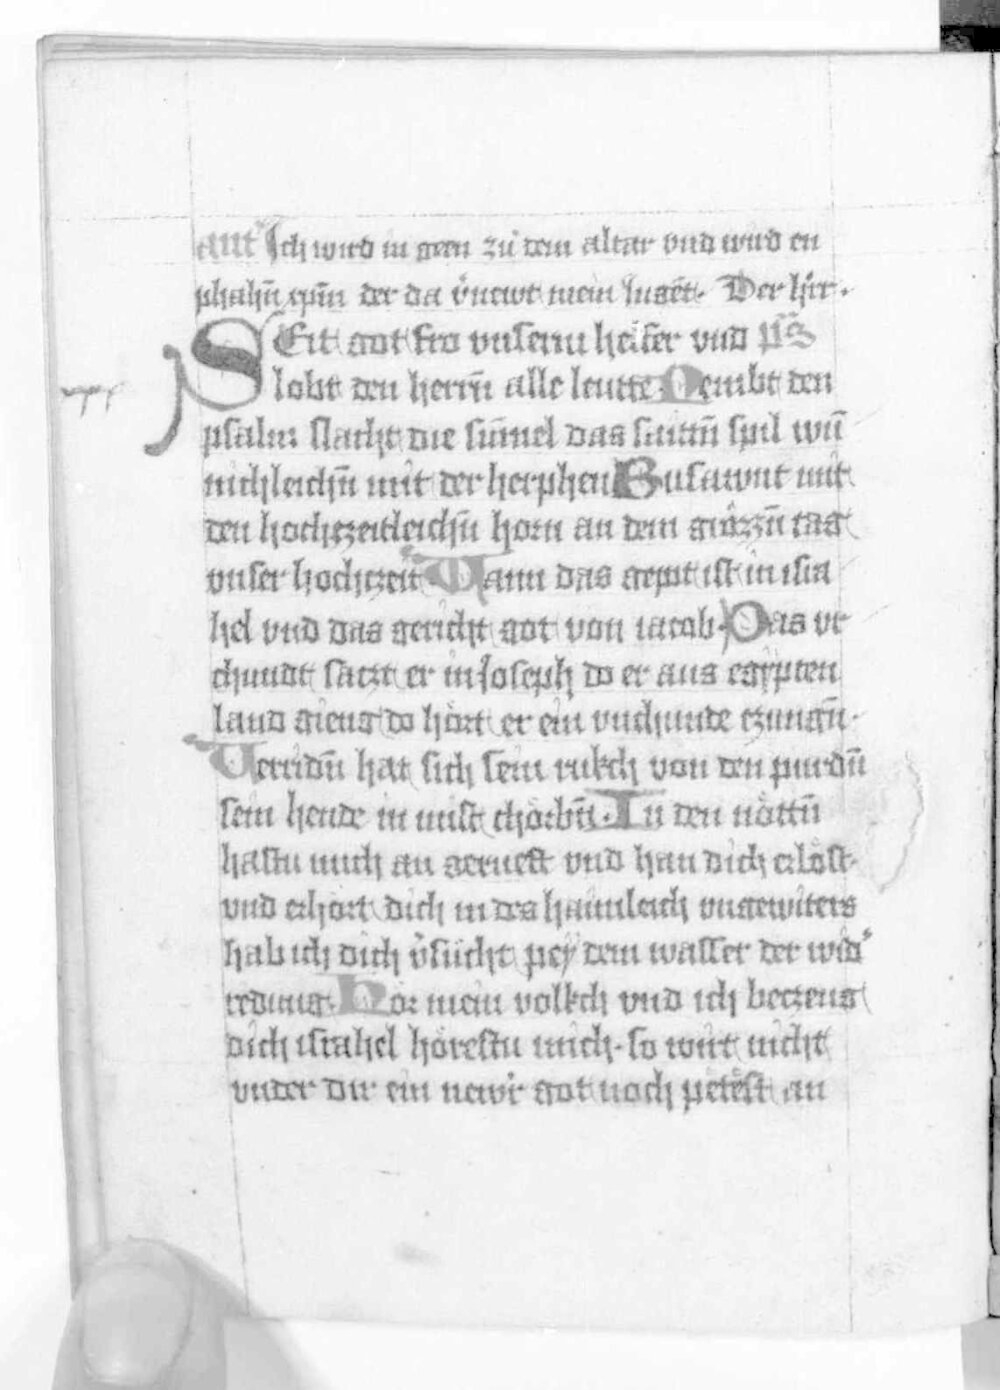 ant Ich wird in geen zů dem altar vnd wird en
phahn̄ xp̄m der da v̓newt mein Iugēt. Der hirr.
SEit got fro vnserm helfer vnd ps̄
lobt den herrn̄ alle leutte Nembt den
psalm slacht die sūmel das suittn̄ spil wū
nichleichn̄ mit der herphen Busawnt mit
den hochczeitleichn̄ horn an dem grözzn̄ tag
vnser hochczeit Wann das gepot ist in isra
hel vnd das gericht got von iacob. Das vr
chundt saczt er in Ioseph do er aus egypten
land gieng do hört er ein vnchunde czungn̄.
Verridn̄ hat sich sein rukch von den purdn̄
sein hende in mist chörbn̄. In den nöttn̄
hastu mich an gerueft vnd han dich erlöst.
vnd erhört dich in des haimleich vngewiters
hab ich dich v̓sücht pey dem wasser der wid̓
redung. Hör mein volkch vnd ich beczeug
dich israhel hörestu mich. so wirt nicht
vnder dir ein newr got noch petest an